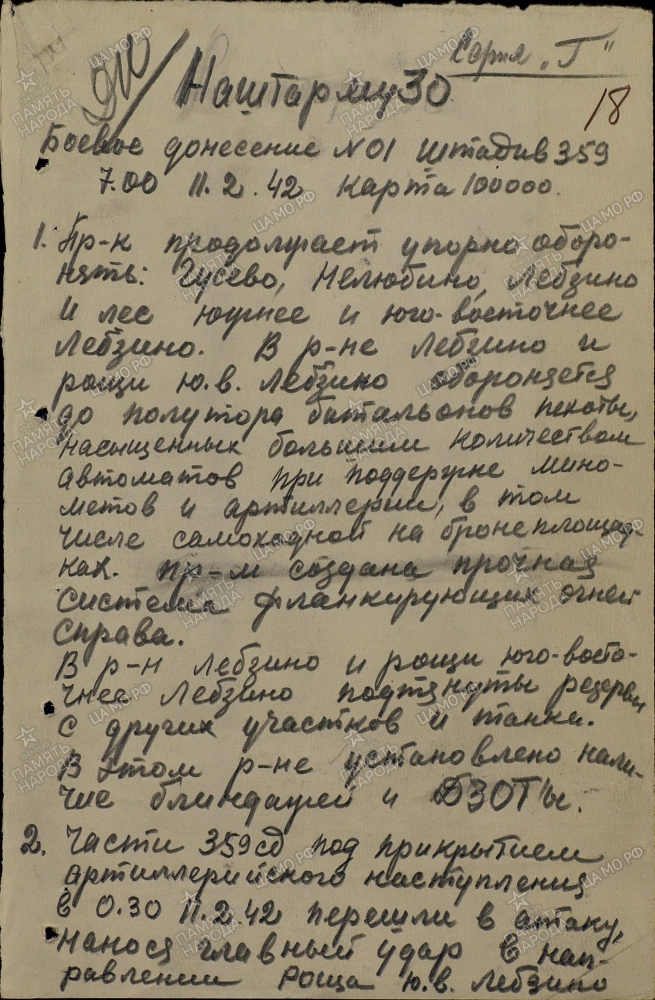 Серия „Г"
910/
Наштарму 30
18
Боевое донесение N 01 штадив 359
7.00 11.2.42 карта 100000.
1. Пр-к продолжает упорно оборо-
нять: Гусево, Нелюбино, Лебзино
и лес южнее и юго-восточнее
Лебзино. В р-не Лебзино и
рощи ю.в. Лебзино обороняется
до полутора батальонов пехоты,
насыщенных большим количеством
автоматов при поддержке мино-
метов и артиллерии, в том
числе самоходной на бронеплощад-
ках. Пр-м создана прочная
система фланкирующих огней
справа.
В р-н Лебзино и рощи юго-восто-
чнее Лебзино подтянуты резервы
с других участков и танки.
В этом р-не установлено нали-
чие блиндажей и ДЗОТы.
2. Части 359 сд под прикрытием
артиллерийского наступления
в 0.30 11.2.42 перешли в атаку,
нанося главный удар в нап-
равлении роща ю.в. Лебзино
ПАМЯТЬ НАРОДА
ЦАМО.РФ